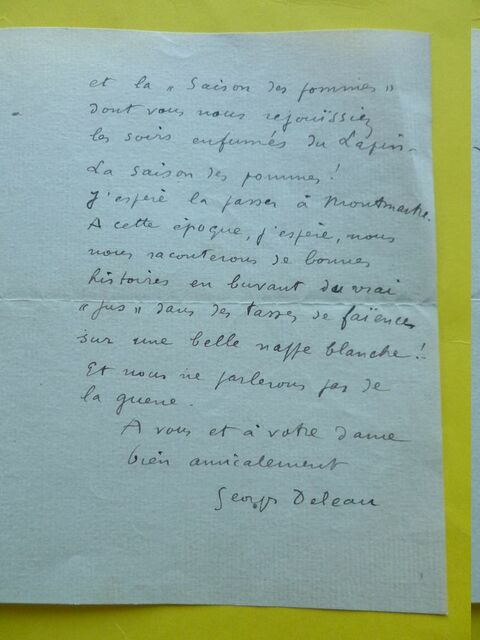 et la « Saison des pommes »
dont vous nous rejouissiez
les soirs enfumés du Lapin-
La saison des pommes !
J'espère la passer à Montmartre.
A cette époque, j'espère, nous
nous raconterons de bonnes
histoires en buvant du vrai
« jus » dans des tasses de faïences
sur une belle nappe blanche !-
Et nous ne parlerons pas de
la guerre.
A vous et à votre dame
bien amicalement
Georges Deleau